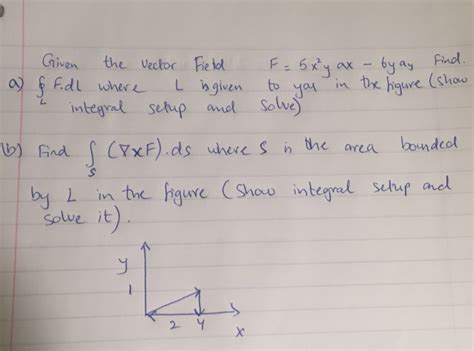 Given the vector Field F = 5x²y ax - 6y ay Find.
a) ∮ F.dL where L is given to you in the figure (show
L
integral setup and Solve)
(b) Find ∫ (∇×F).ds where S is the area bounded
S
by L in the figure (Show integral setup and
solve it).
y
1
2 4
x